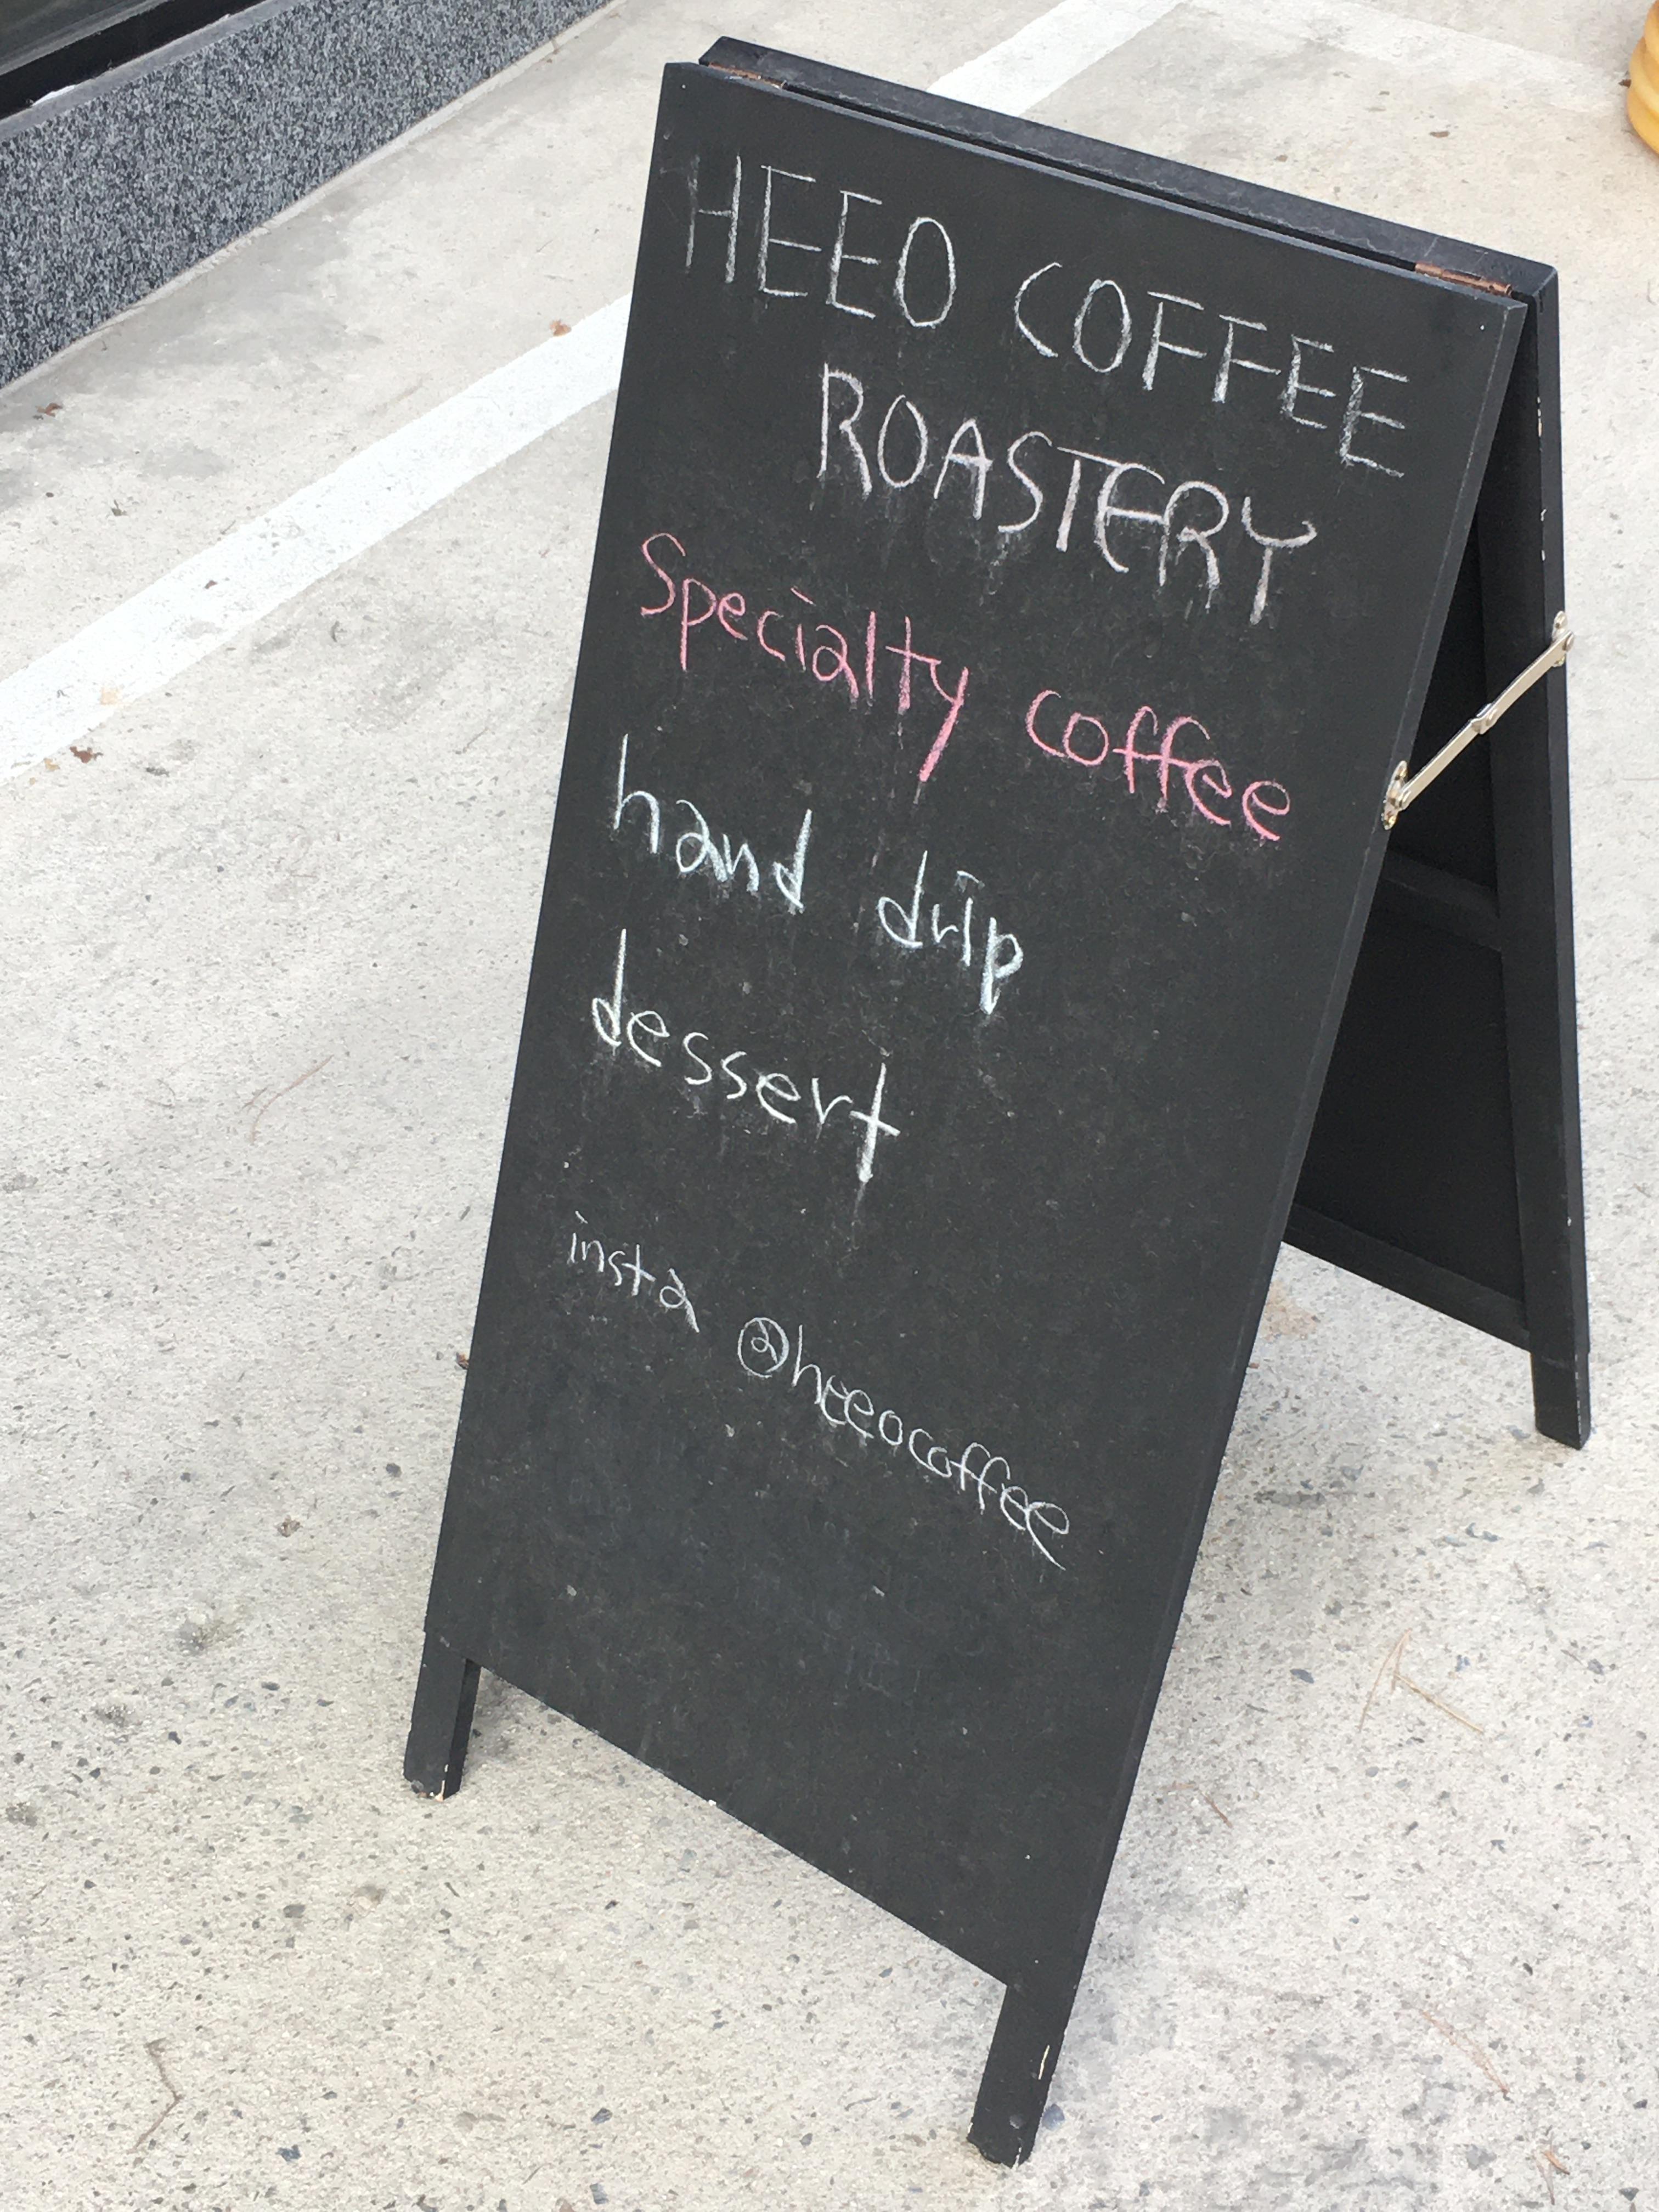 HEEO COFFEE
ROASTERY
Specialty coffee
hand drip
dessert
insta @heeocoffee